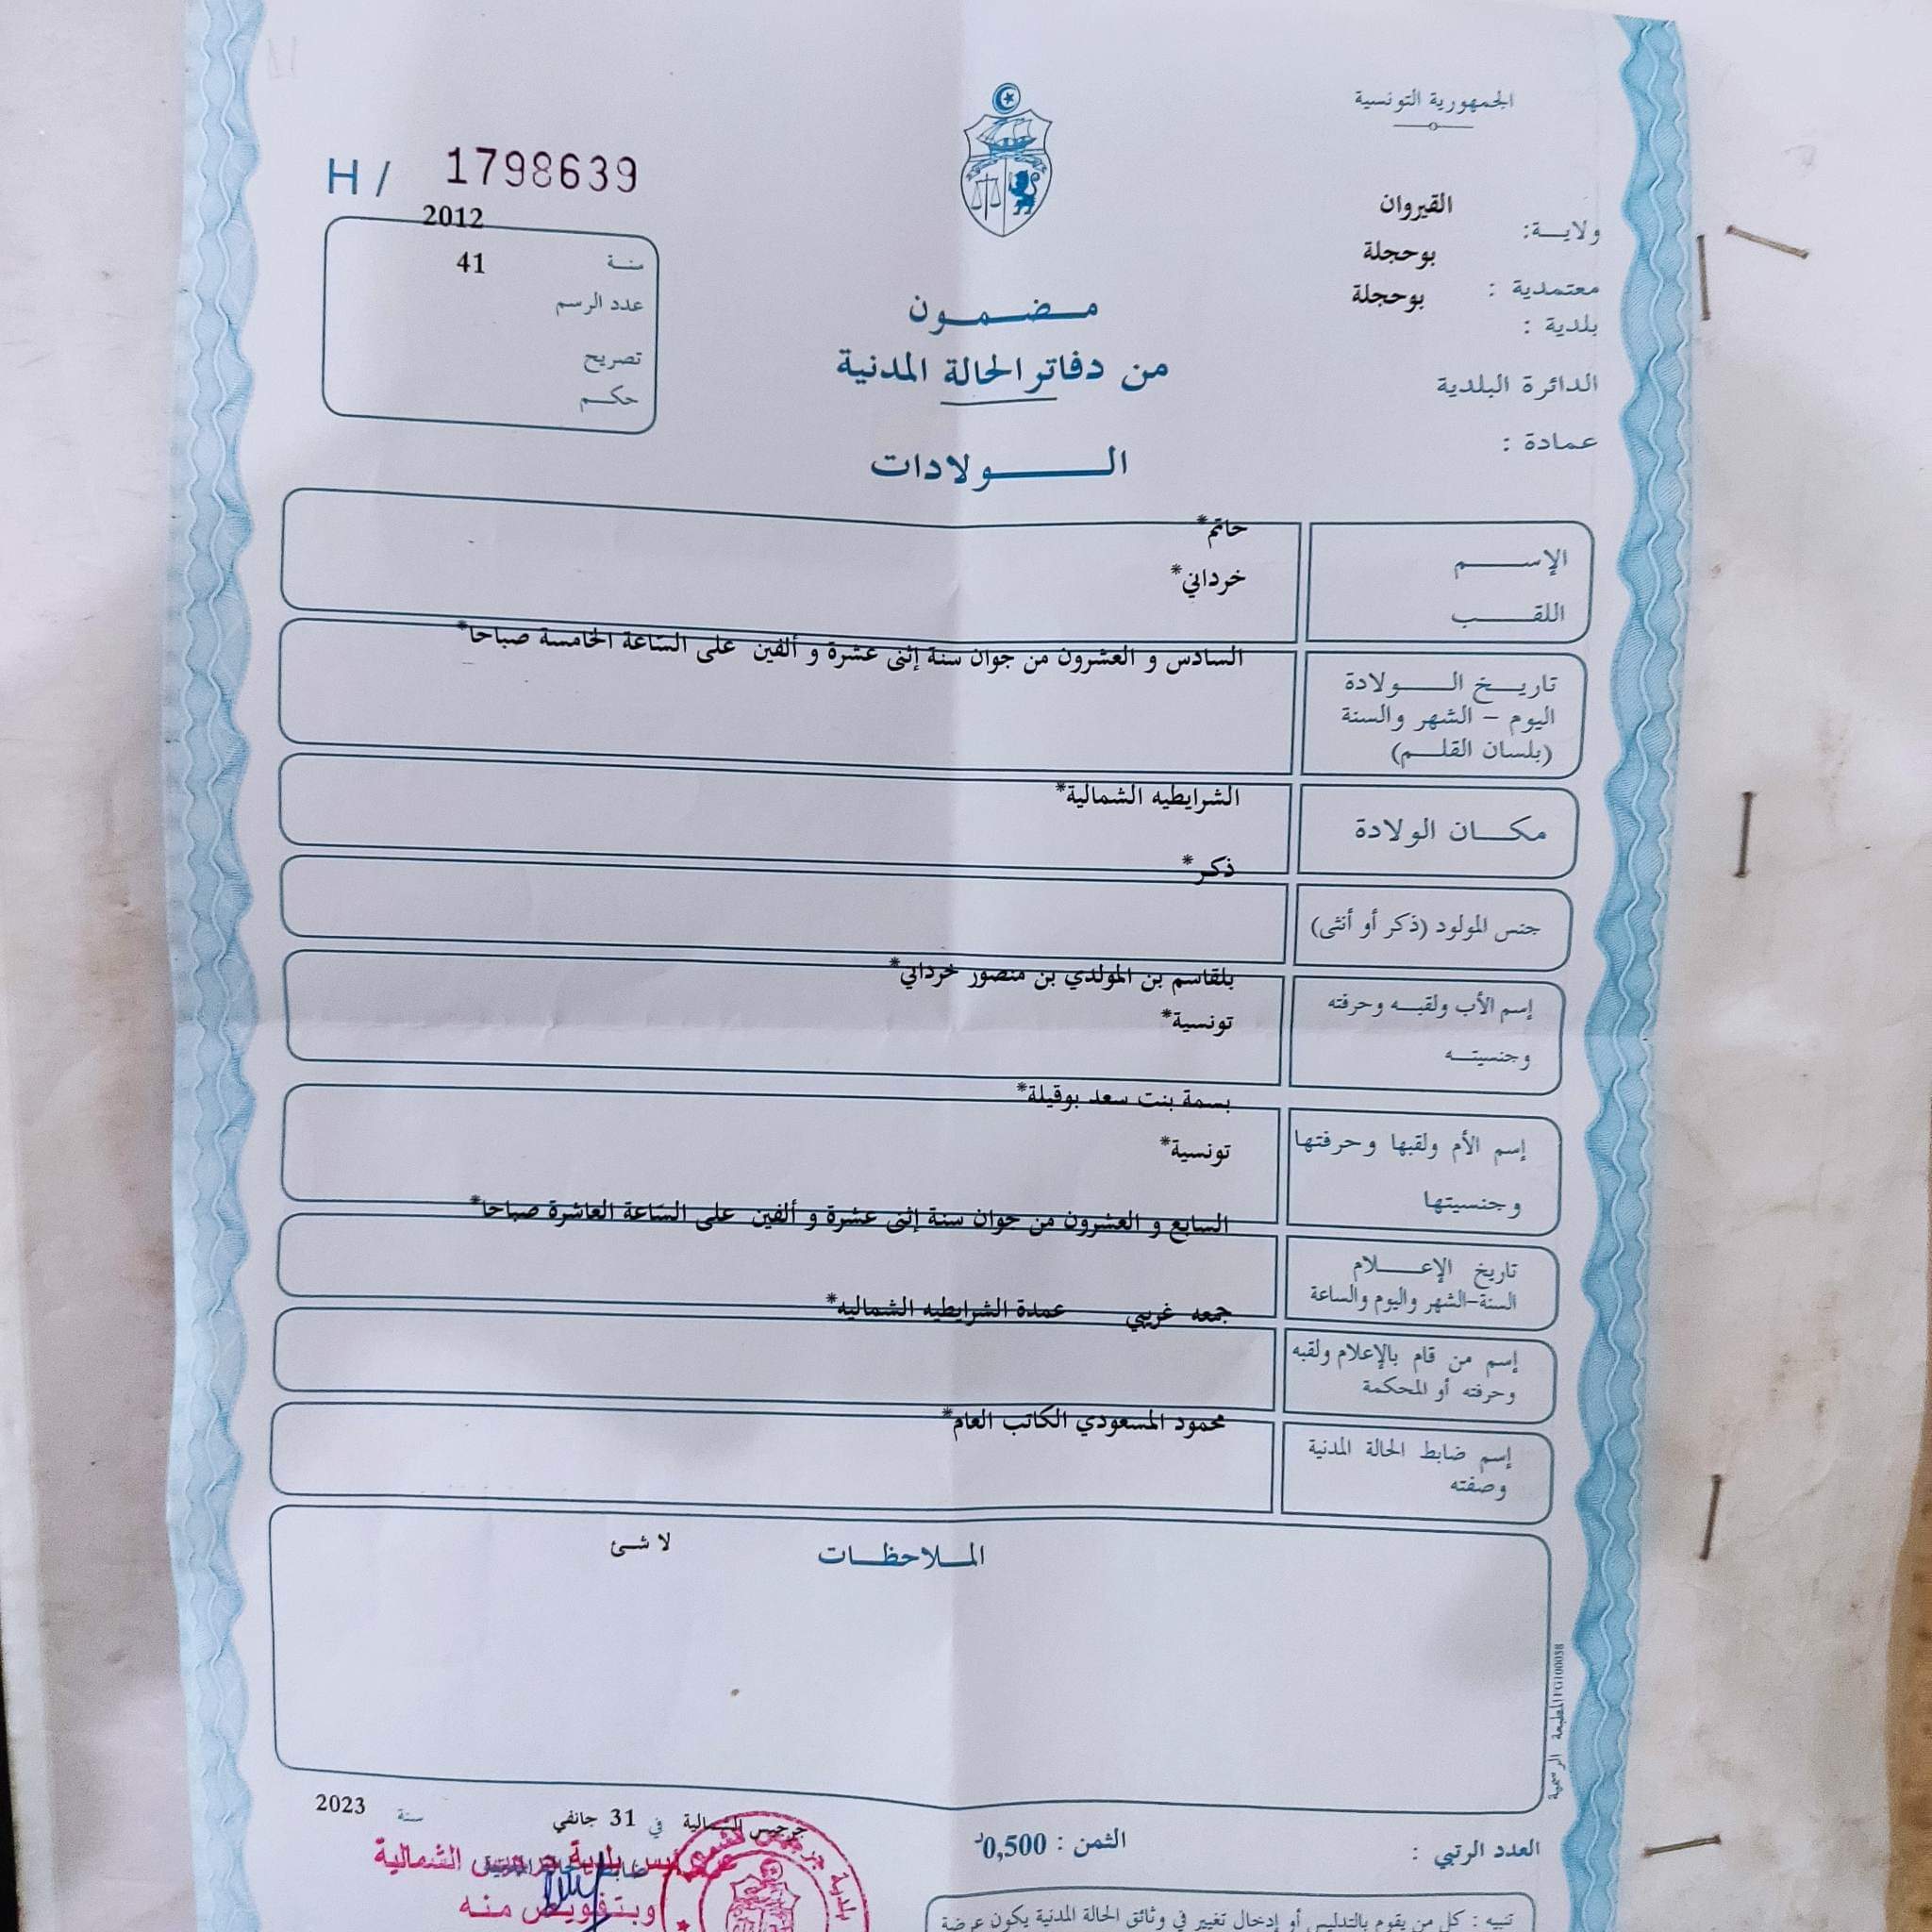 الجمهورية التونسية
H / 1798639
ولاية: القيروان
معتمدية : بوحجلة
بلدية : بوحجلة
الدائرة البلدية
عمادة :
سنة 2012
عدد الرسم 41
تصريح
حكم
مضمون
من دفاتر الحالة المدنية
الولادات
الإسم حاتم*
اللقب خرداني*
تاريخ الولادة
اليوم – الشهر والسنة
(بلسان القلم)
السادس و العشرون من جوان سنة إثنى عشرة و ألفين على الساعة الخامسة صباحا*
مكان الولادة الشرايطيه الشمالية*
جنس المولود (ذكر أو أنثى) ذكر*
إسم الأب ولقبه وحرفته بلقاسم بن المولدي بن منصور خرداني*
وجنسيته تونسية*
إسم الأم ولقبها وحرفتها بسمة بنت سعد بوقيلة*
وجنسيتها تونسية*
تاريخ الإعلام
السنة-الشهر واليوم والساعة
السابع و العشرون من جوان سنة إثنى عشرة و ألفين على الساعة العاشرة صباحا*
إسم من قام بالإعلام ولقبه
وحرفته أو المحكمة
جمعه غريبي عمدة الشرايطيه الشماليه*
إسم ضابط الحالة المدنية
وصفته
محمود المسعودي الكاتب العام*
الملاحظات لا شئ
المطبعة الرسمية
جرجيس الشمالية في 31 جانفي سنة 2023
بلدية جرجيس الشمالية
وبتفويض منه
العدد الرتبي :
الثمن : 0,500د
تنبيه : كل من يقوم بالتدليس أو إدخال تغيير في وثائق الحالة المدنية يكون عرضة